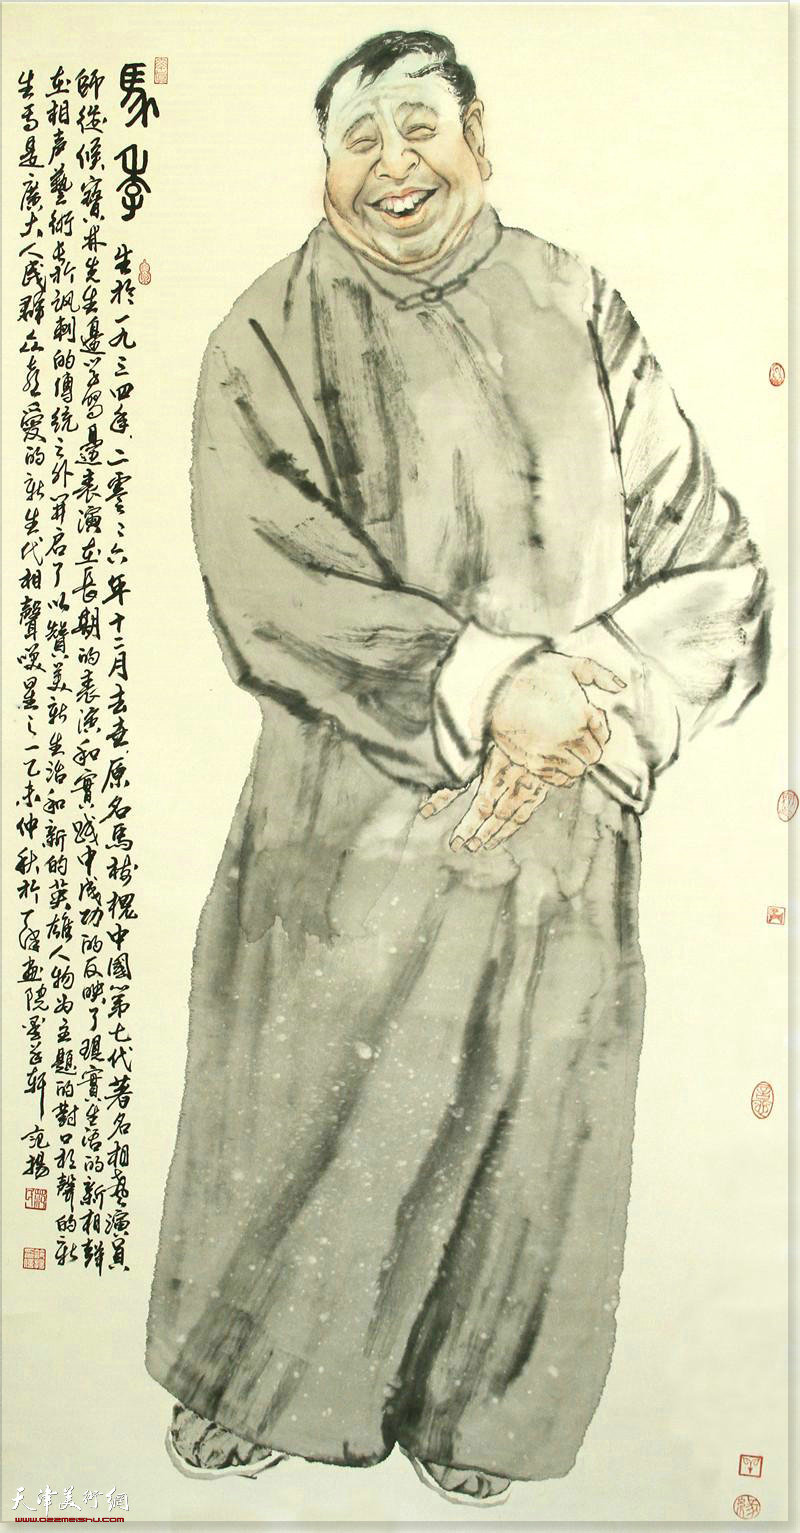 馬季
生於一九三四年二零零六年十二月去世原名馬樹槐中國第七代著名相聲演員
師從候寶林先生邊學習邊表演在長期的表演和實踐中成功的反映了現實生活的新相聲
在相声藝術長於諷刺的傳統之外開啟了以贊美新生活和新的英雄人物為主題的對口相聲的新
生馬是廣大人民群众喜愛的新生代相聲笑星之一乙未仲秋於天津畫院軒范揚
天津美術網
www.022meishu.com